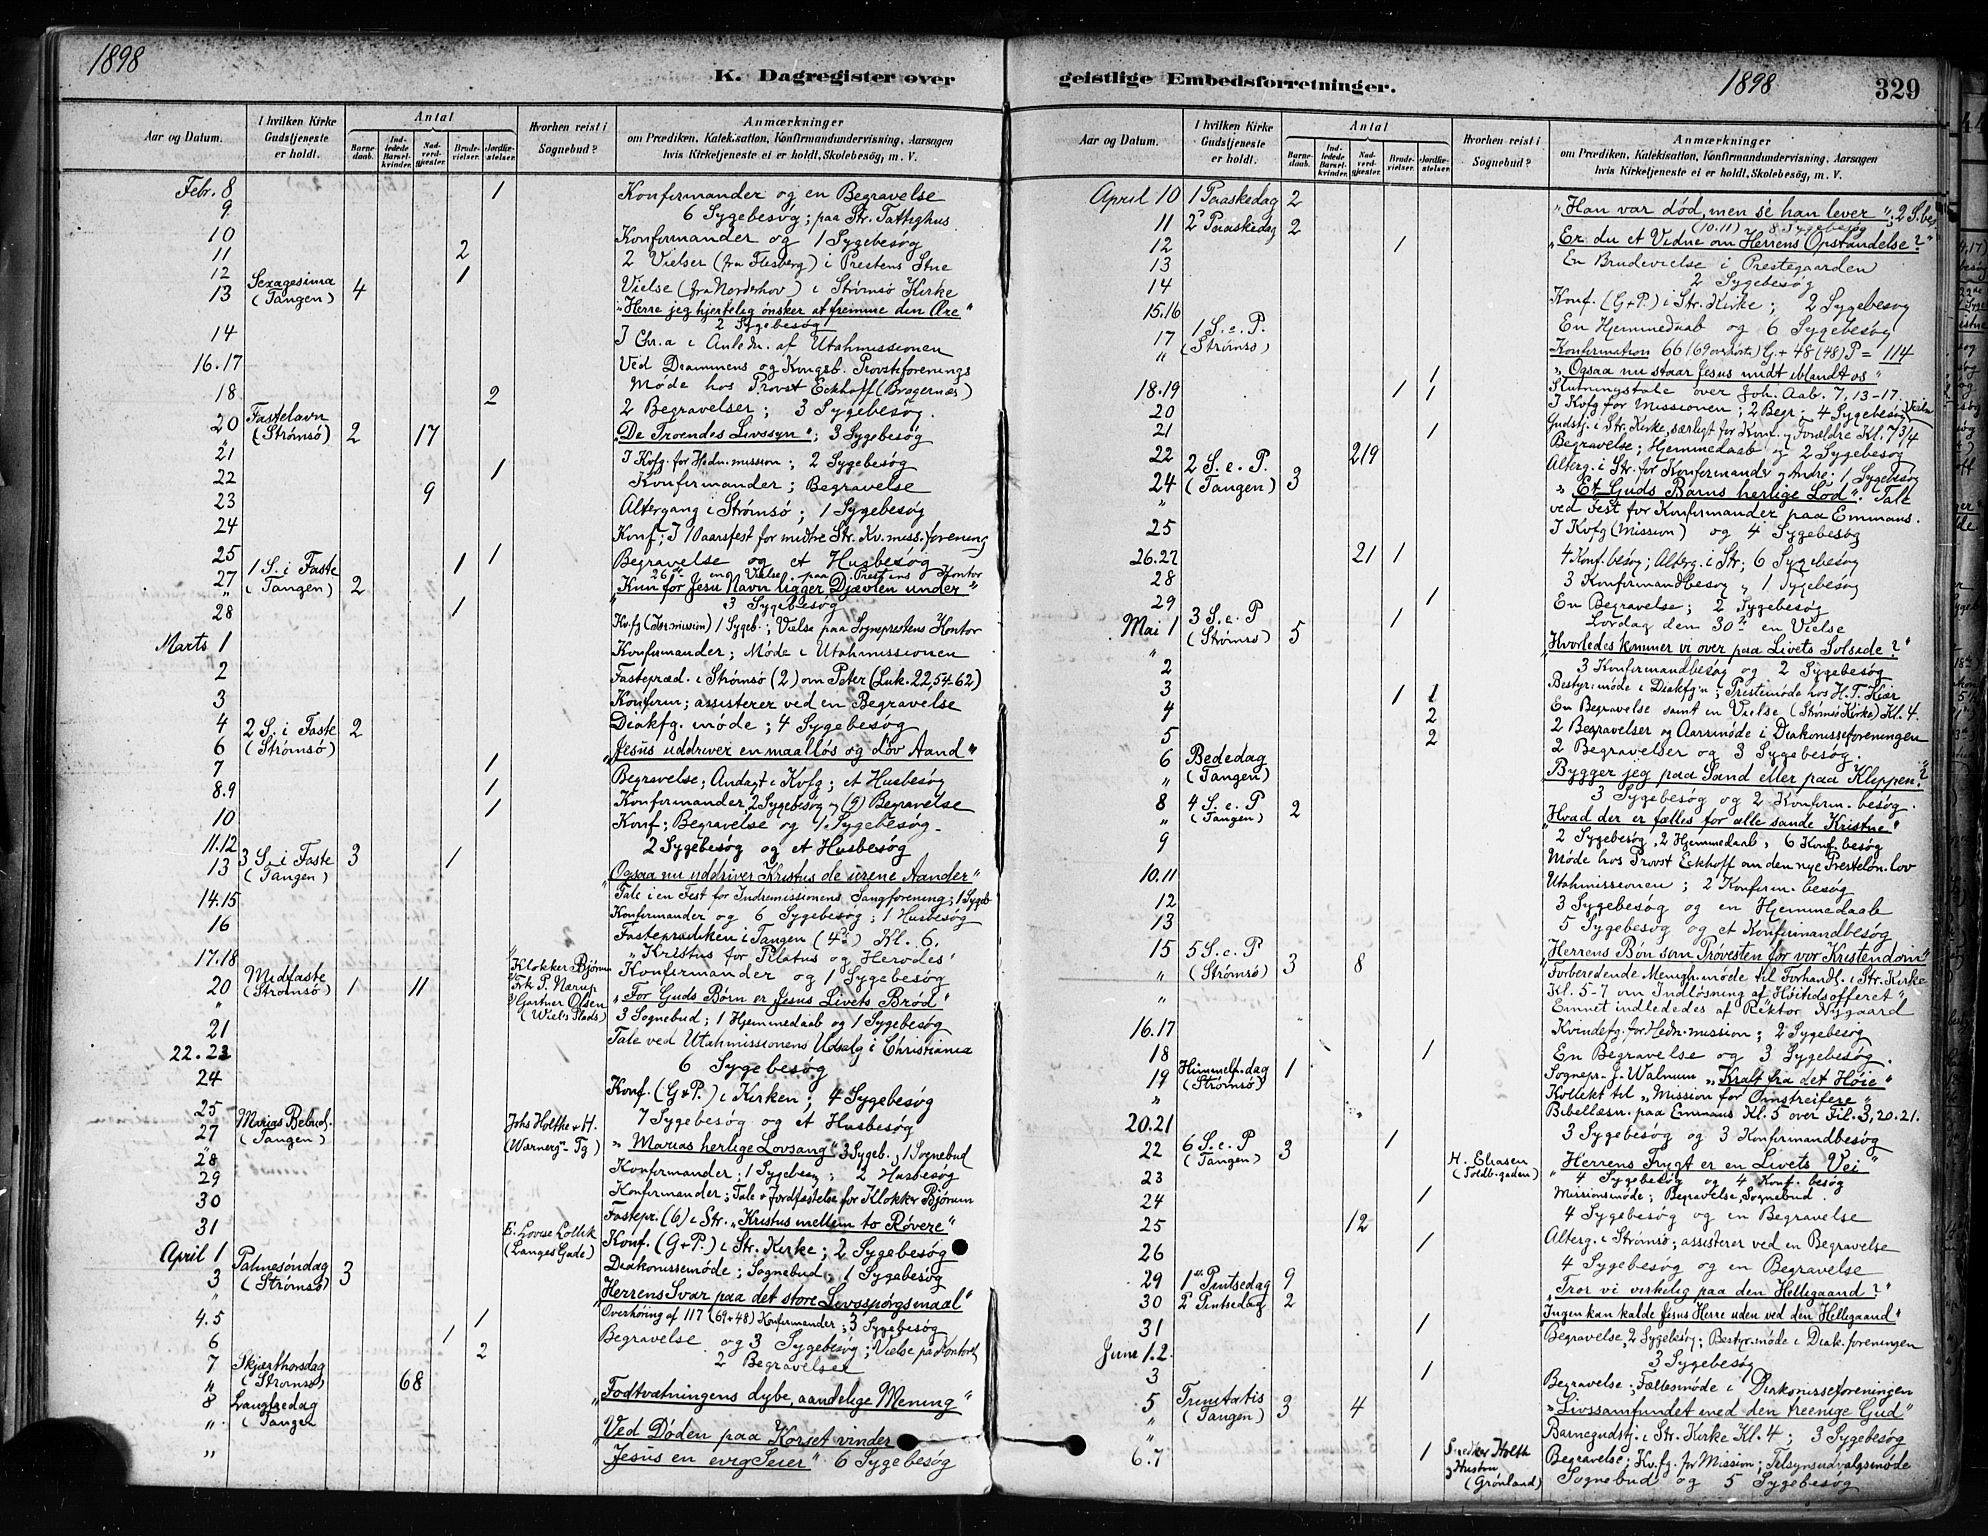 1898
K. Dagregister over
Aar og Datum.
I hvilken Kirke Gudstjeneste er holdt.
Antal
Barnedaab.
Indledede Barselkvinder.
Nadverdgjester.
Brudevielser.
Jordfæstelser.
Hvorhen reist i Sognebud?
Anmærkninger
om Prædiken, Katekisation, Konfirmandundervisning, Aarsagen
hvis Kirketjeneste ei er holdt, Skolebesøg, m. V.
Febr. 8 1 Konfirmander og en Begravelse
9 6 Sygebesøg; paa Str. Fattighus
10 Konfirmander og 1 Sygebesøg
11 2 2 Vielser (fra Flesberg) i Prestens Stue
12 1 Vielse (fra Norderhov) i Strømsø Kirke
13 Sexagesima (Tangen) 4 "Herre jeg hjertelig ønsker at fremme den Ære"
2 Sygebesøg
14 I Chr.a i Anledn. af Utahmissionen
16.17 Ved Drammens og Kongsb. Provstiforenings
Møde hos Provst Eckhoff (Bragernæs)
18 2 2 Begravelser; 3 Sygebesøg.
20 Fastelavn (Strømsø) 2 17 "De Troendes Livssyn"; 3 Sygebesøg
21 I Kvfg. for Hedn. mission; 2 Sygebesøg
22 1 Konfirmander; Begravelse
23 9 Altergang i Strømsø; 1 Sygebesøg
24 Konf; I Aarsfest for midtre Str. Kv. miss. forening
25 1 1 Begravelse og et Husbesøg
26de en Vielse paa Prestens Kontor
27 1 S. i Faste (Tangen) 2 "Kun for Jesu Navn ligger Djævlen under"
3 Sygebesøg
28 1 Kvfg (Mission) 1 Sygeb.; Vielse paa Sogneprestens Kontor
Marts 1 Konfirmander; Møde i Utahmissionen
2 Fastepræd. i Strømsø (2) om Peter (Luk. 22,54-62)
3 Konfirm; assisterer ved en Begravelse
4 Diakfg. møde; 4 Sygebesøg
6 2 S. i Faste (Strømsø) 2 "Jesus uddriver en maalløs og døv Aand"
7 1 Begravelse; Andagt i Kvfg; et Husbesøg
8.9 1 Konfirmander 2 Sygebesøg og (9) Begravelse
10 1 Konf; Begravelse og 1 Sygebesøg
11.12 2 Sygebesøg og et Husbesøg
13 3 S. i Faste (Tangen) 3 1 "Ogsaa nu uddriver Kristus de urene Aander"
Tale i en Fest for Indremissionens Sangforening; 1 Sygeb
14.15 Konfirmander og 6 Sygebesøg; 1 Husbesøg
16 Fasteprædiken i Tangen (4) Kl. 6.
"Kristus for Pilatus og Herodes"
17.18 Konfirmander og 1 Sygebesøg
20 Midfaste (Strømsø) 1 11 Klokker Bjørum Frk P. Nærup Gartner Olsen (Wiels Plads) "For Guds Børn er Jesus Livets Brød"
3 Sognebud; 1 Hjemmedaab og 1 Sygebesøg
21 Tale ved Utahmissionens Udsalg i Christiania
22.23 6 Sygebesøg
24 Konf. (G+P.) i Kirken; 4 Sygebesøg
25 7 Sygebesøg og et Husbesøg
27 Marias Bebud. (Tangen) Johs Holthe + H. "Marias herlige Lovsang" 3 Sygeb., 1 Sognebud
28 Konfirmander; 1 Sygebesøg; 2 Husbesøg
29 Konfirmander; Tale + Jordfæstelse for Klokker Bjørum
30 Fastepr. (6) i Str. "Kristus mellem to Røvere"
31 (Langes Gade) Konf. (G+P.) i Str. Kirke; 2 Sygebesøg
April 1 Diakonissemøde; Sognebud; 1 Sygebesøg
3 Palmesøndag (Strømsø) 3 "Herrens Svar paa det store Livsspørgsmaal"
Overhøring af 117 (69+48) Konfirmander; 3 Sygebesøg
4.5 1 Begravelse og 3 Sygebesøg; Vielse paa Kontoret
6 1 2 2 Begravelser
7 Skjærthorsdag (Strømsø) 68 "Fodtvætningens dybe, aandelige Mening"
8 Langfredag (Tangen "Ved Døden paa Korset vinder
Jesus en evig Seier" 6 Sygebesøg
geistlige Embedsforretninger.
1898
329
Aar og Datum.
I hvilken Kirke Gudstjeneste er holdt.
Antal
Barnedaab.
Indledede Barselkvinder.
Nadverdgjester.
Brudevielser.
Jordfæstelser.
Hvorhen reist i Sognebud?
Anmærkninger
om Prædiken, Katekisation, Konfirmandundervisning, Aarsagen
hvis Kirketjeneste ei er holdt, Skolebesøg, m. V.
April 10 1 Paaskedag 2 "Han var død, men se han lever"; 2 S.bes.
(10.11) 8 Sygebesøg
11 2 Paaskedag 2 "Er du et Vidne om Herrens Opstandelse?"
12 1 En Brudevielse i Prestegaarden
13 2 Sygebesøg
14 Konf. (G+P.) i Str. Kirke; 2 Sygebesøg
15.16 En Hjemmedaab og 6 Sygebesøg
17 1 S. e. P. (Strømsø) Konfirmation 66 (69 overhørte) G + 48 (48) P = 114
" 1 "Ogsaa nu staar Jesus midt iblandt os"
Slutningstale over Joh. Aab. 7, 13-17.
18.19 1 1 I Kvfg for Missionen; 2 Begr; 4 Sygebesøg Vielse
20 Gudstj. i Str. Kirke, særligt for Konf. og Forældre Kl. 7 3/4
21 1 Begravelse; Hjemmedaab og 2 Sygebesøg
22 219 Alterg. i Str. for Konfirmander og Andre; 1 Sygebesøg
24 2 S. e. P. (Tangen) 3 "Et Guds Barns herlige Lod". Tale
ved Fest for Konfirmander paa Emmaus.
25 I Kvfg (Mission) og 4 Sygebesøg
26.27 21 1 4 Konf. besøg; Alterg. i Str; 6 Sygebesøg
28 3 Konfirmandbesøg, 1 Sygebesøg
29 1 En Begravelse; 2 Sygebesøg
Lørdag den 30te en Vielse
Mai 1 3 S. e. P (Strømsø) 5 1 "Hvorledes kommer vi over paa Livets Solside?"
2 3 Konfirmandbesøg og 2 Sygebesøg
Bestyr. møde i Diakfg'n; Prestemøde hos H. T. Kiær
3 1 1 En Begravelse samt en Vielse (Strømsø Kirke) Kl. 4.
4 2 2 Begravelser og Aarsmøde i Diakonisseforeningen
5 2 2 Begravelser og 3 Sygebesøg.
6 Bededag (Tangen) "Bygger jeg paa Sand eller paa Klippen?"
3 Sygebesøg og 2 Konfirm. besøg.
8 4 S. e. P (Tangen) 2 "Hvad der er fælles for alle sande Kristne"
2 Sygebesøg, 2 Hjemmedaab, 6 Konf. besøg
9 Møde hos Provst Eckhoff om den nye Prestelønslov
10.11 Utahmissionen; 2 Konfirm. besøg
12 3 Sygebesøg og en Hjemmedaab
13 5 Sygebesøg og et Konfirmandbesøg
15 5 S. e. P (Strømsø) 3 8 "Herrens Bøn som Prøvesten for vor Kristendom"
" Forberedende Mengh. møde til Forhandl. i Str. Kirke
" Kl. 5-7 om Indløsning af Høitidsofferet"
Emnet indledes af Rektor Nygaard
16.17 Kvindefg. for Hedn. mission; 2 Sygebesøg
18 1 En Begravelse og 3 Sygebesøg.
19 Himmelf. dag (Strømsø) 1 Sognepr. J. Walnum "Kraft fra det Høie"
" Kollekt til "Mission for Omstreifere"
20.21 Bibellæsn. paa Emmaus Kl. 5 over Fil. 3, 20.21.
3 Sygebesøg og 3 Konfirmandbesøg
22 6 S. e. P (Tangen) 3 1 "Herrens Frygt er en Livets Vei"
4 Sygebesøg og 4 Konf. besøg
23 H. Eliasen (Toldb.gaden) Missionsmøde; Begravelse, Sognebud.
24 1 4 Sygebesøg og en Begravelse
25 12 Alterg. i Strømsø; assisterer ved en Begravelse
26 1 4 Sygebesøg og en Begravelse
29 1ste Pintsedag 9 "Tror vi virkelig paa den Helligaand?"
30 2 Pintsedag 2 "Ingen kan kalde Jesus Herre uden ved den Helligaand"
31 1 Begravelse, 2 Sygebesøg; Bestyr. møde i Diak. foreningen
Juni 1.2. 3 Sygebesøg
3 1 Begravelse; Fællesmøde i Diakonisseforeningen
5 Trinitatis (Tangen) 3 4 "Livssamfundet med den treenige Gud"
" Barnegudstj. i Str. Kirke Kl. 4; 3 Sygebesøg
6.7 1 Snedker Holth og Hustru (Grønland) Begravelse; Kv. fg. for Mission; Tilsynsudvalgsmøde
Sognebud og 5 Sygebesøg